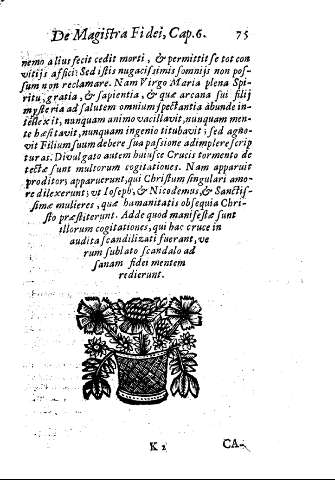 De Magistra Fidei, Cap.6. 75
nemo alius fecit cedit morti, & permittit se tot con
vitijs affici: Sed istis nugacissimis somnijs non pos-
sum non reclamare. Nam Virgo Maria plena Spi-
ritu, gratia, & sapientia, & quæ arcana sui filij
mysteria ad salutem omnium spectantia abunde in-
tellexit, nunquam animo vacillavit, nunquam men-
te hæsitavit, nunquam ingenio titubavit; sed agno-
vit Filium suum debere sua passione adimplere scrip
turas. Divulgato autem hujusce Crucis tormento de
tectæ sunt multorum cogitationes. Nam apparuit
proditor; apparuerunt, qui Christum singulari amo-
re dilexerunt; ut Ioseph, & Nicodemus, & Sanctis-
simæ mulieres, quæ humanitatis obsequia Chri-
sto præstiterunt. Adde quod manifestæ sunt
illorum cogitationes, qui hac cruce in
audita scandilizati fuerant, ve
rum sublato scandalo ad
sanam fidei mentem
redierunt.
K 2 CA-